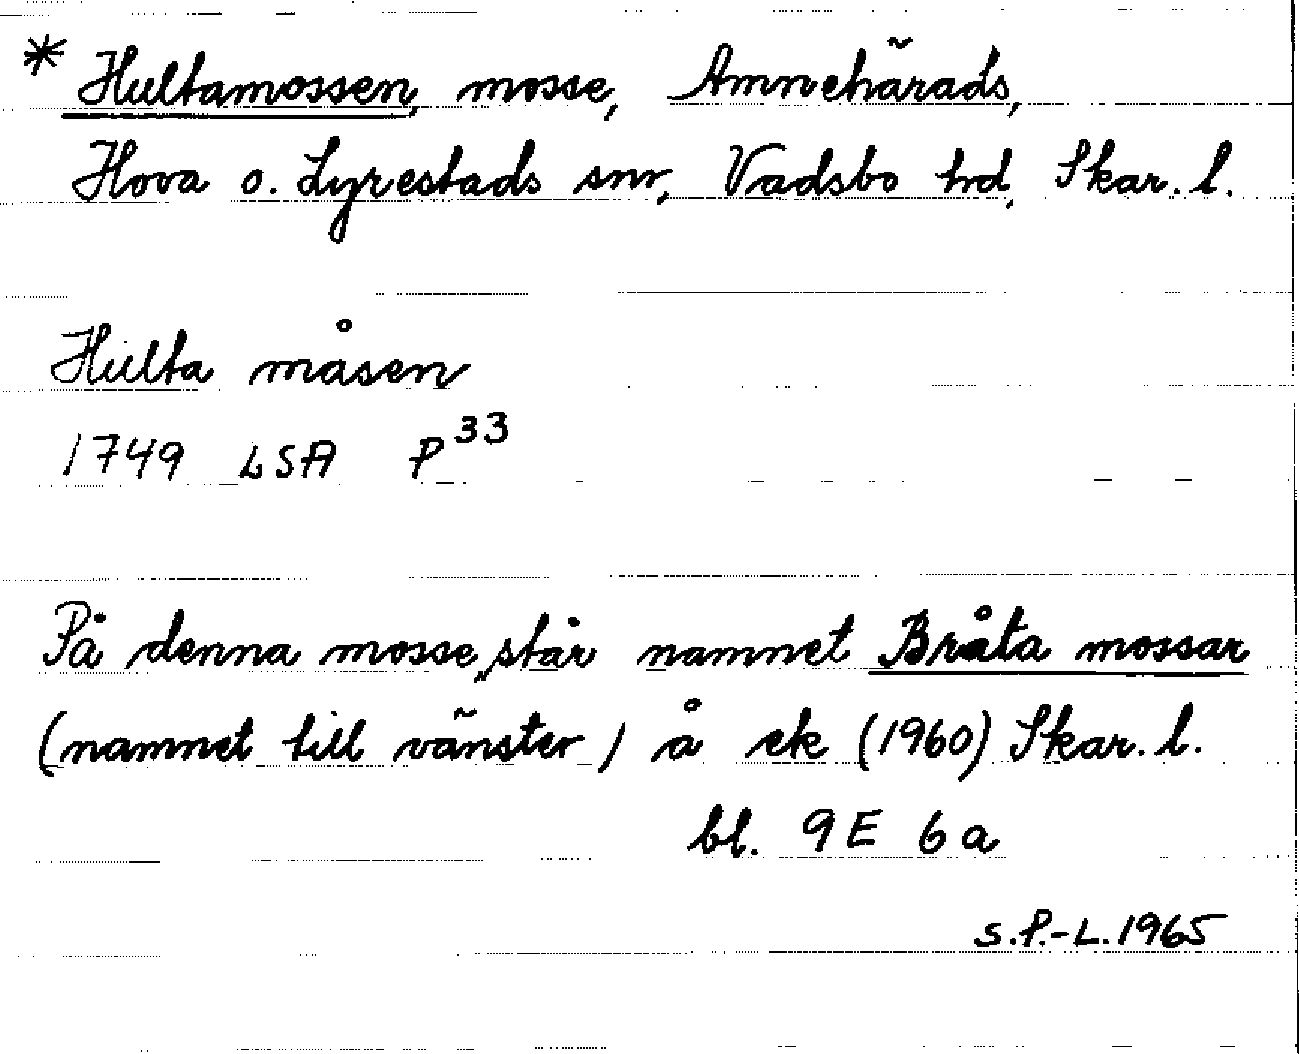 * Hultamossen, mosse, Amnehärads,
Hova o. Lyrestads snr, Vadsbo hd, Skar. l.
Hulta måsen
1749 LSA P³³
På denna mosse, står namnet Bråta mossar
(namnet till vänster) å ek (1960) Skar. l.
bl. 9E 6a
S.P.-L. 1965